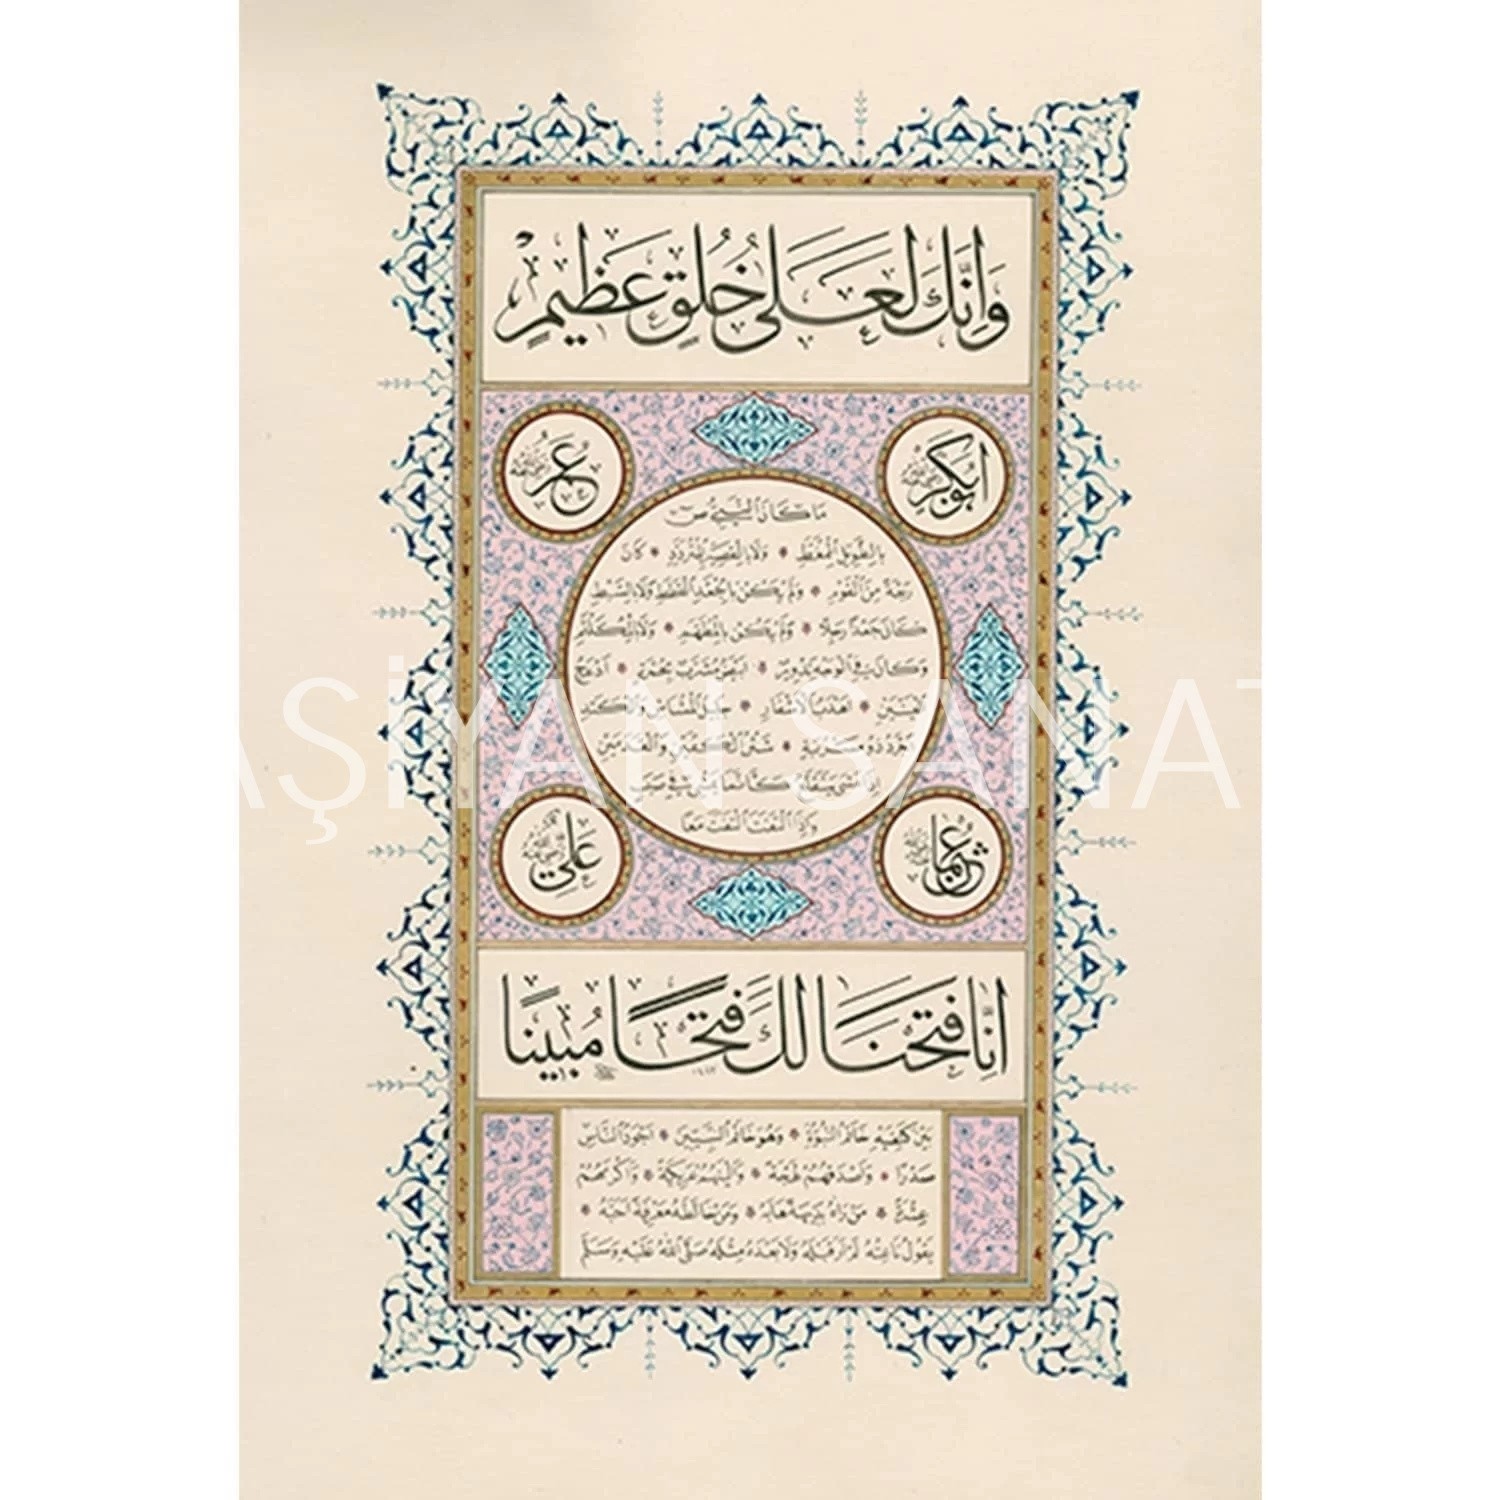 وَاِنَّكَ لَعَلٰى خُلُقٍ عَظِيمٍ
ابوبكر رضي الله عنه
عمر رضي الله عنه
ما كان النبي ص
بالطويل الممغط * ولا بالقصير المتردد * كان
ربعة من القوم * ولم يكن بالجعد القطط ولا بالسبط
كان جعدا رجلا * ولم يكن بالمطهم * ولا بالمكلثم
وكان في الوجه تدوير * ابيض مشرب بحمرة * ادعج
العينين * اهدب الاشفار * جليل المشاش والكتد
اجرد ذو مسربة * شثن الكفين والقدمين
اذا مشى يتقلع كانما يمشي في صبب
واذا التفت التفت معا
عثمان رضي الله عنه
علي رضي الله عنه
اِنَّا فَتَحْنَا لَكَ فَتْحًا مُبِينًا
بين كتفيه خاتم النبوة * وهو خاتم النبيين * اجود الناس
صدرا * واصدقهم لهجة * والينهم عريكة * واكرمهم
عشرة * من رآه بديهة هابه * ومن خالطه معرفة احبه *
يقول ناعته لم ار قبله ولا بعده مثله صلى الله عليه وسلم
AŞİYAN SANAT